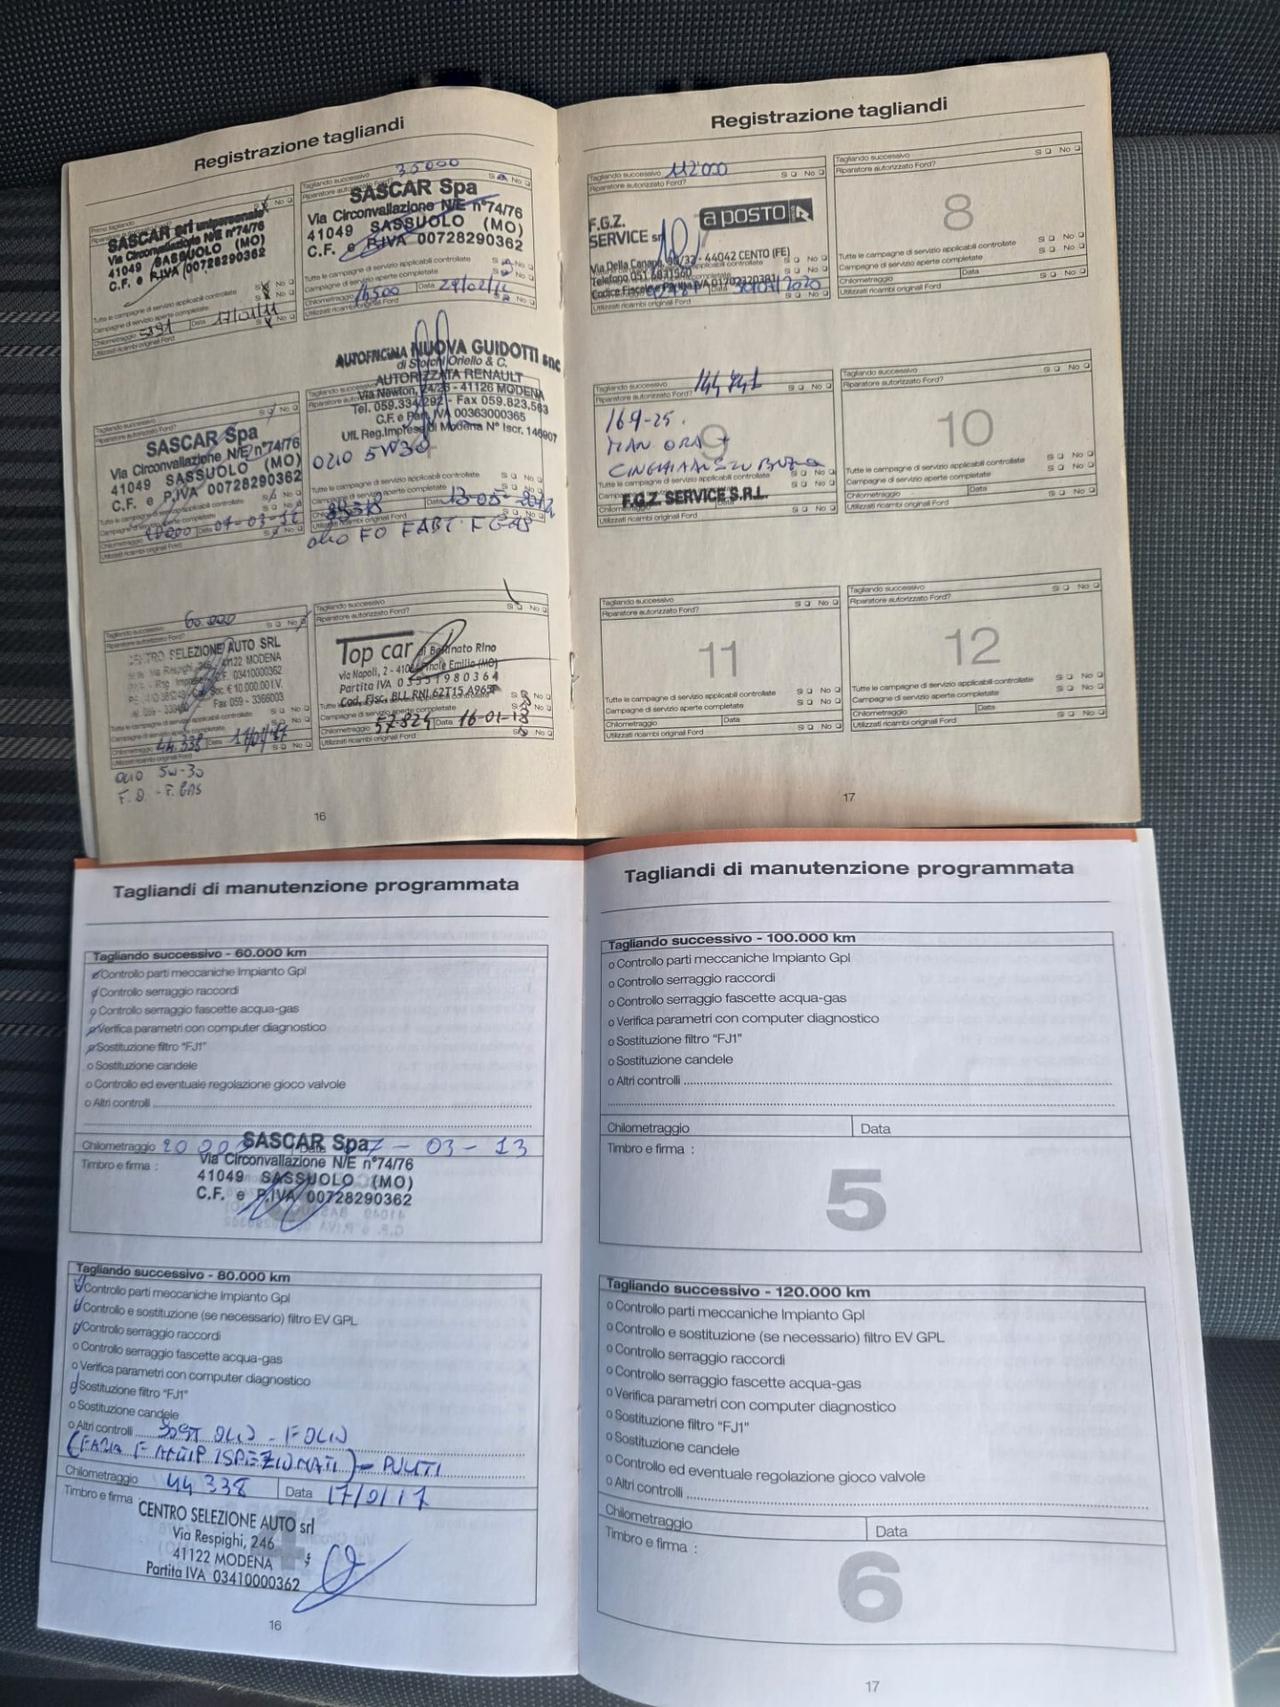 Registrazione tagliandi
SASCAR srl unipersonale
Via Circonvallazione N/E n°74/76
41049 SASSUOLO (MO)
C.F. e P.IVA 00728290362
Tutte le campagne di servizio applicabili controllate
Campagne di servizio aperte completate
Chilometraggio Data 17/01/11
Utilizzati ricambi originali Ford
35000
Tagliando successivo
Riparatore autorizzato Ford?
SASCAR Spa
Via Circonvallazione N/E n°74/76
41049 SASSUOLO (MO)
C.F. e P.IVA 00728290362
Tutte le campagne di servizio applicabili controllate
Campagne di servizio aperte completate
Chilometraggio 16500 Data 29/02/12
Utilizzati ricambi originali Ford
SASCAR Spa
Via Circonvallazione N/E n°74/76
41049 SASSUOLO (MO)
C.F. e P.IVA 00728290362
Utilizzati ricambi originali Ford
AUTOFFICINA NUOVA GUIDOTTI snc
di Storchi Oriello & C.
AUTORIZZATA RENAULT
Via Newton, 24/26 - 41126 MODENA
Tel. 059.334292 - Fax 059.823.563
C.F. e Part. IVA 00363000365
Uff. Reg. Imprese di Modena N° Iscr. 146907
OLIO 5W30
Tutte le campagne di servizio applicabili controllate
Utilizzati ricambi originali Ford
60.000
Tagliando successivo
CENTRO SELEZIONE AUTO SRL
41122 MODENA
03410000362
Fax 059 - 3366003
Tutte le campagne di servizio applicabili controllate
Campagne di servizio aperte completate
Chilometraggio 44.338 Data
Utilizzati ricambi originali Ford
OLIO 5W-30
Tagliando successivo
Riparatore autorizzato Ford?
Top car di Bellinato Rino
via Napoli, 2 - Finale Emilia (MO)
Partita IVA 03331980364
Cod. Fisc. BLL RNI 62T15 A965P
Campagne di servizio aperte completate
Chilometraggio 57824 Data 16-01-18
Utilizzati ricambi originali Ford
16
Registrazione tagliandi
Tagliando successivo 112000
Riparatore autorizzato Ford? Sì No
F.G.Z.
SERVICE srl
a posto
Via Della Canapa, 30/32 - 44042 CENTO (FE)
Telefono 051.6831560
Utilizzati ricambi originali Ford
Tagliando successivo
Riparatore autorizzato Ford? Sì No
8
Tutte le campagne di servizio applicabili controllate Sì No
Campagne di servizio aperte completate Sì No
Chilometraggio Data
Utilizzati ricambi originali Ford Sì No
Tagliando successivo
Riparatore autorizzato Ford? Sì No
9
F.G.Z. SERVICE S.R.L.
Utilizzati ricambi originali Ford
Tagliando successivo
Riparatore autorizzato Ford? Sì No
10
Tutte le campagne di servizio applicabili controllate Sì No
Campagne di servizio aperte completate Sì No
Chilometraggio Data
Utilizzati ricambi originali Ford Sì No
Tagliando successivo
Riparatore autorizzato Ford? Sì No
11
Tutte le campagne di servizio applicabili controllate Sì No
Campagne di servizio aperte completate Sì No
Chilometraggio Data
Utilizzati ricambi originali Ford Sì No
Tagliando successivo
Riparatore autorizzato Ford? Sì No
12
Tutte le campagne di servizio applicabili controllate Sì No
Campagne di servizio aperte completate Sì No
Chilometraggio Data
Utilizzati ricambi originali Ford Sì No
17
Tagliandi di manutenzione programmata
Tagliando successivo - 60.000 km
Controllo parti meccaniche Impianto Gpl
Controllo serraggio raccordi
Controllo serraggio fascette acqua-gas
Verifica parametri con computer diagnostico
Sostituzione filtro "FJ1"
o Sostituzione candele
o Controllo ed eventuale regolazione gioco valvole
o Altri controlli
Chilometraggio 20 000 Data 7 - 03 - 13
Timbro e firma :
SASCAR Spa
Via Circonvallazione N/E n°74/76
41049 SASSUOLO (MO)
C.F. e P.IVA 00728290362
Tagliando successivo - 80.000 km
Controllo parti meccaniche Impianto Gpl
Controllo e sostituzione (se necessario) filtro EV GPL
Controllo serraggio raccordi
o Controllo serraggio fascette acqua-gas
o Verifica parametri con computer diagnostico
Sostituzione filtro "FJ1"
o Sostituzione candele
o Altri controlli SOST OLIO - FOLIO
ISPEZIONATI) - PULITI
Chilometraggio 44 338 Data 17/01/17
Timbro e firma
CENTRO SELEZIONE AUTO srl
Via Respighi, 246
41122 MODENA
Partita IVA 03410000362
16
Tagliandi di manutenzione programmata
Tagliando successivo - 100.000 km
o Controllo parti meccaniche Impianto Gpl
o Controllo serraggio raccordi
o Controllo serraggio fascette acqua-gas
o Verifica parametri con computer diagnostico
o Sostituzione filtro "FJ1"
o Sostituzione candele
o Altri controlli
Chilometraggio Data
Timbro e firma :
5
Tagliando successivo - 120.000 km
o Controllo parti meccaniche Impianto Gpl
o Controllo e sostituzione (se necessario) filtro EV GPL
o Controllo serraggio raccordi
o Controllo serraggio fascette acqua-gas
o Verifica parametri con computer diagnostico
o Sostituzione filtro "FJ1"
o Sostituzione candele
o Controllo ed eventuale regolazione gioco valvole
o Altri controlli
Chilometraggio Data
Timbro e firma :
6
17